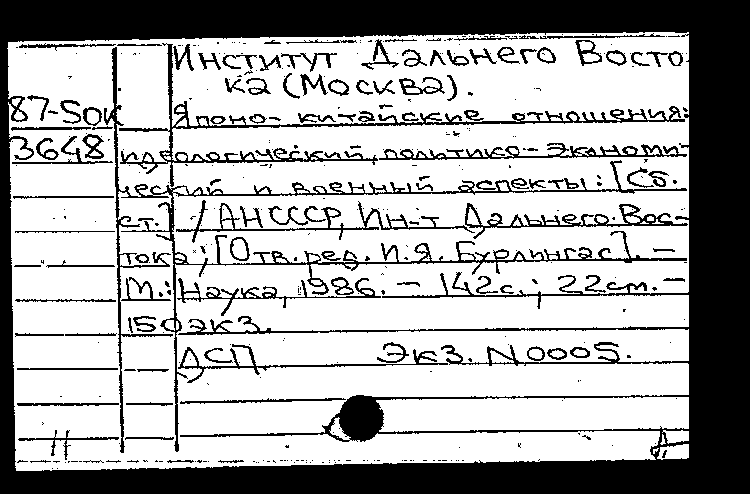 Институт Дальнего Восто-
ка (Москва).
87-5ОК Японо-китайские отношения:
3648 идеологический, политико-экономи-
ческий и военный аспекты: [Сб.
ст.] / АН СССР, Ин-т Дальнего Вос-
тока; [Отв. ред. И.Я. Бурлингас]. –
М.: Наука, 1986. – 142с.; 22см. –
150экз.
ДСП Экз. N0005.